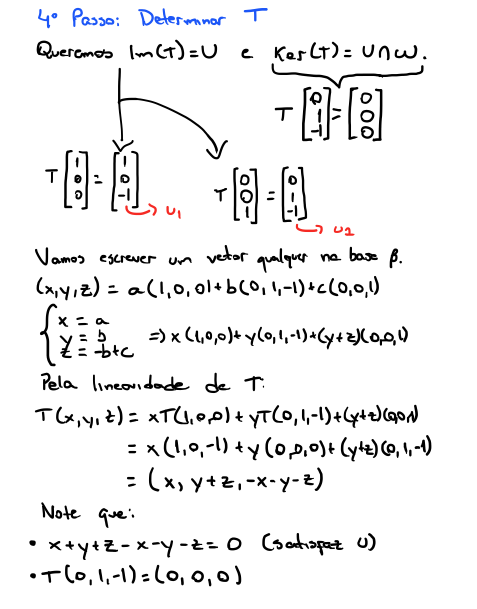 4º Passo: Determinar T
Queremos Im(T)=U e Ker(T)=U∩W.
T [0 1 -1] = [0 0 0]
T [1 0 0] = [1 0 -1] → U1
T [0 0 1] = [0 1 -1] → U2
Vamos escrever um vetor qualquer na base β.
(x,y,z) = a(1,0,0)+b(0,1,-1)+c(0,0,1)
{ x = a
y = b => x(1,0,0)+y(0,1,-1)+(y+z)(0,0,1)
z = -b+c
Pela linearidade de T:
T(x,y,z) = xT(1,0,0)+yT(0,1,-1)+(y+z)(0,0,1)
= x(1,0,-1)+y(0,0,0)+(y+z)(0,1,-1)
= (x, y+z, -x-y-z)
Note que:
• x+y+z-x-y-z=0 (satisfaz U)
• T(0,1,-1)=(0,0,0)